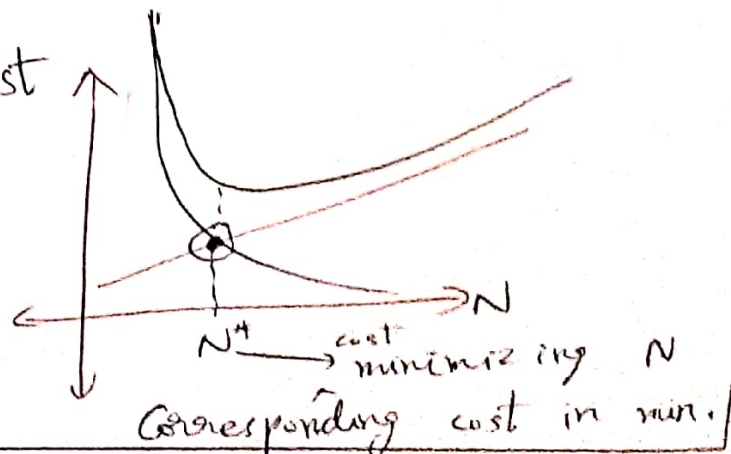 st
N
N*
cost
minimizing N
Corresponding cost in min.